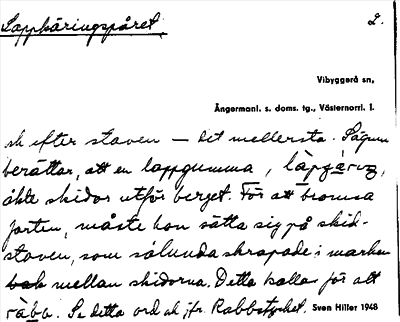 Lappkäringspåret. 2.
Vibyggerå sn,
Ångermanl. s. doms. tg., Västernorrl. l.
sk efter staven — det mellersta. Sägnen
berättar, att en lappgumma,
åkte skidor utför berget. För att bromsa
farten, måste hon sätta sig på skid-
staven, som sålunda skrapade i marken
mellan skidorna. Detta kallas för att
råba. Se detta ord och jfr. Rabbstycket. Sven Hiller 1948